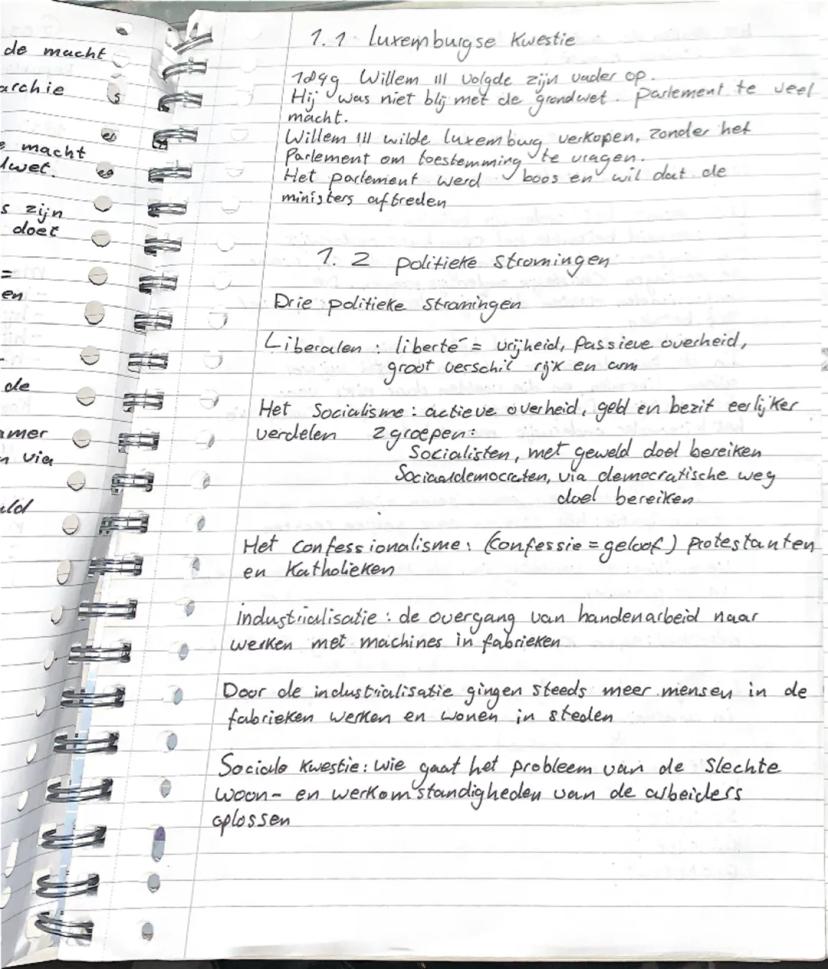 de macht
archie
e macht
dwet.
s zijn
doet
=
en
de
amer
n via
1.1 Luxemburgse Kwestie
1849 Willem III volgde zijn vader op.
Hij was niet blij met de grondwet. Parlement te veel
macht.
Willem III wilde Luxemburg verkopen, zonder het
Parlement om toestemming te vragen.
Het parlement werd boos en wil dat de
ministers aftreden
1.2 politieke stromingen
Drie politieke stromingen
Liberalen : liberté = vrijheid, Passieve overheid,
groot verschil rijk en arm
Het Socialisme : actieve overheid, geld en bezit eerlijker
verdelen 2 groepen:
Socialisten, met geweld doel bereiken
Sociaaldemocraten, via democratische weg
doel bereiken
Het Confessionalisme : (Confessie = geloof) Protestanten
en Katholieken
industrialisatie : de overgang van handenarbeid naar
werken met machines in fabrieken
Door de industrialisatie gingen steeds meer mensen in de
fabrieken werken en wonen in steden
Sociale Kwestie : wie gaat het probleem van de Slechte
woon- en werkomstandigheden van de arbeiders
oplossen